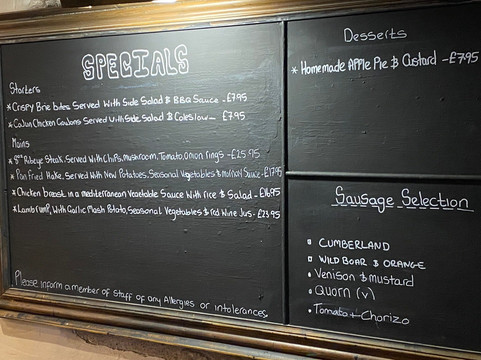 SPECIALS
Starters
* Crispy Brie bites Served With Side Salad & BBQ Sauce - £7.95
* Cajun Chicken Goujons Served With Side Salad & Coleslow - £7.95
Mains
* 8oz Ribeye Steak, Served With Chips, mushroom, Tomato, Onion rings - £25.95
* Pan fried Hake, Served With New Potatoes, Seasonal Vegetables & mornay Sauce - £17.95
* Chicken breast in a mediterranean Vegetable Sauce With rice & Salad - £16.95
* Lamb rump, With Garlic Mash Potato, Seasonal Vegetables & red Wine Jus - £23.95
Please inform a member of Staff of any Allergies or intolerances
Desserts
* Homemade APPle Pie & Custard - £7.95
Sausage Selection
CUMBERLAND
WILD BOAR & ORANGE
Venison & mustard
Quorn (v)
Tomato + Chorizo